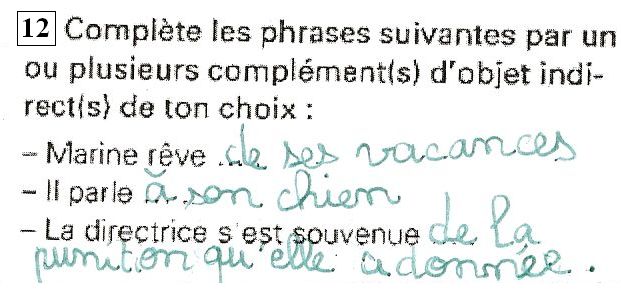 12 Complète les phrases suivantes par un
ou plusieurs complément(s) d'objet indi-
rect(s) de ton choix :
– Marine rêve de ses vacances
– Il parle à son chien
– La directrice s'est souvenue de la
puniton qu'elle a donnée.